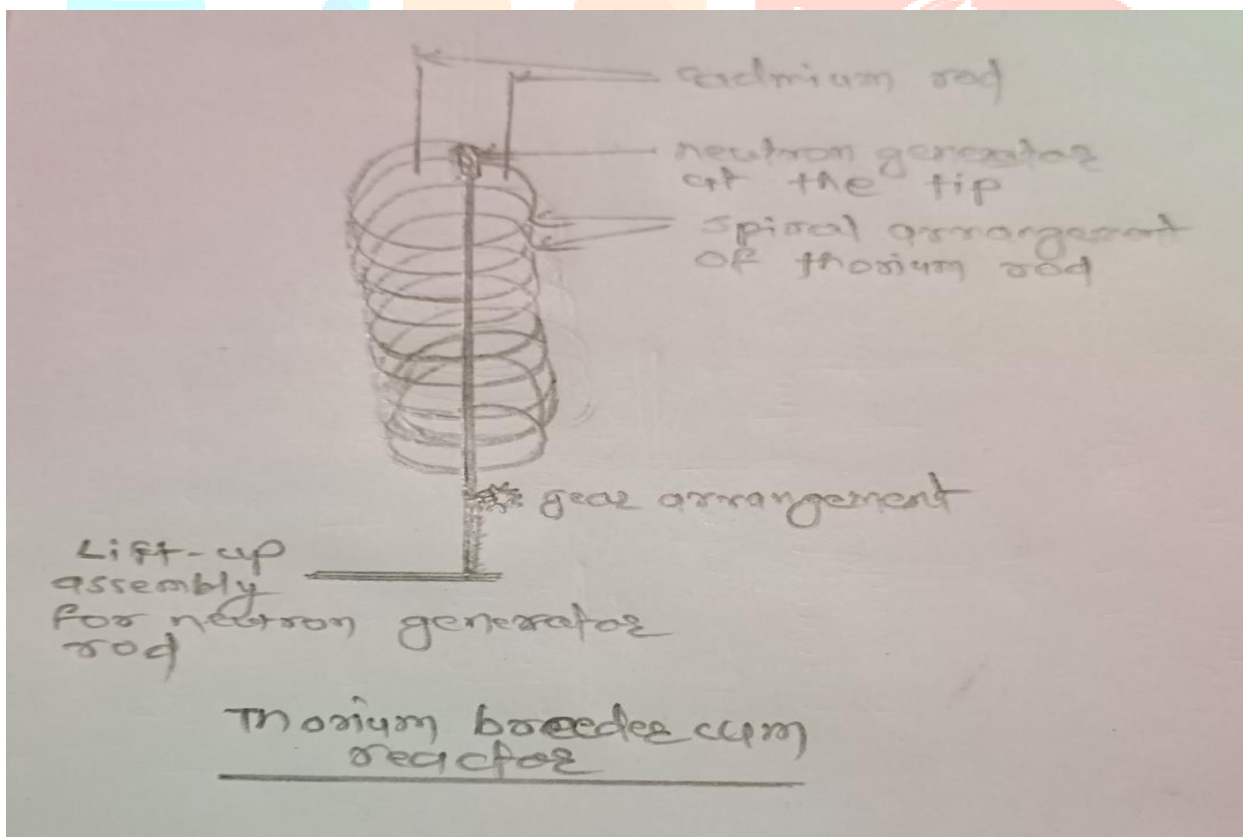 cadmium rod
neutron generator
at the tip
spiral arrangement
of thorium rod
gear arrangement
Lift-up
assembly
for neutron generator
rod
Thorium breeder cum
reactor